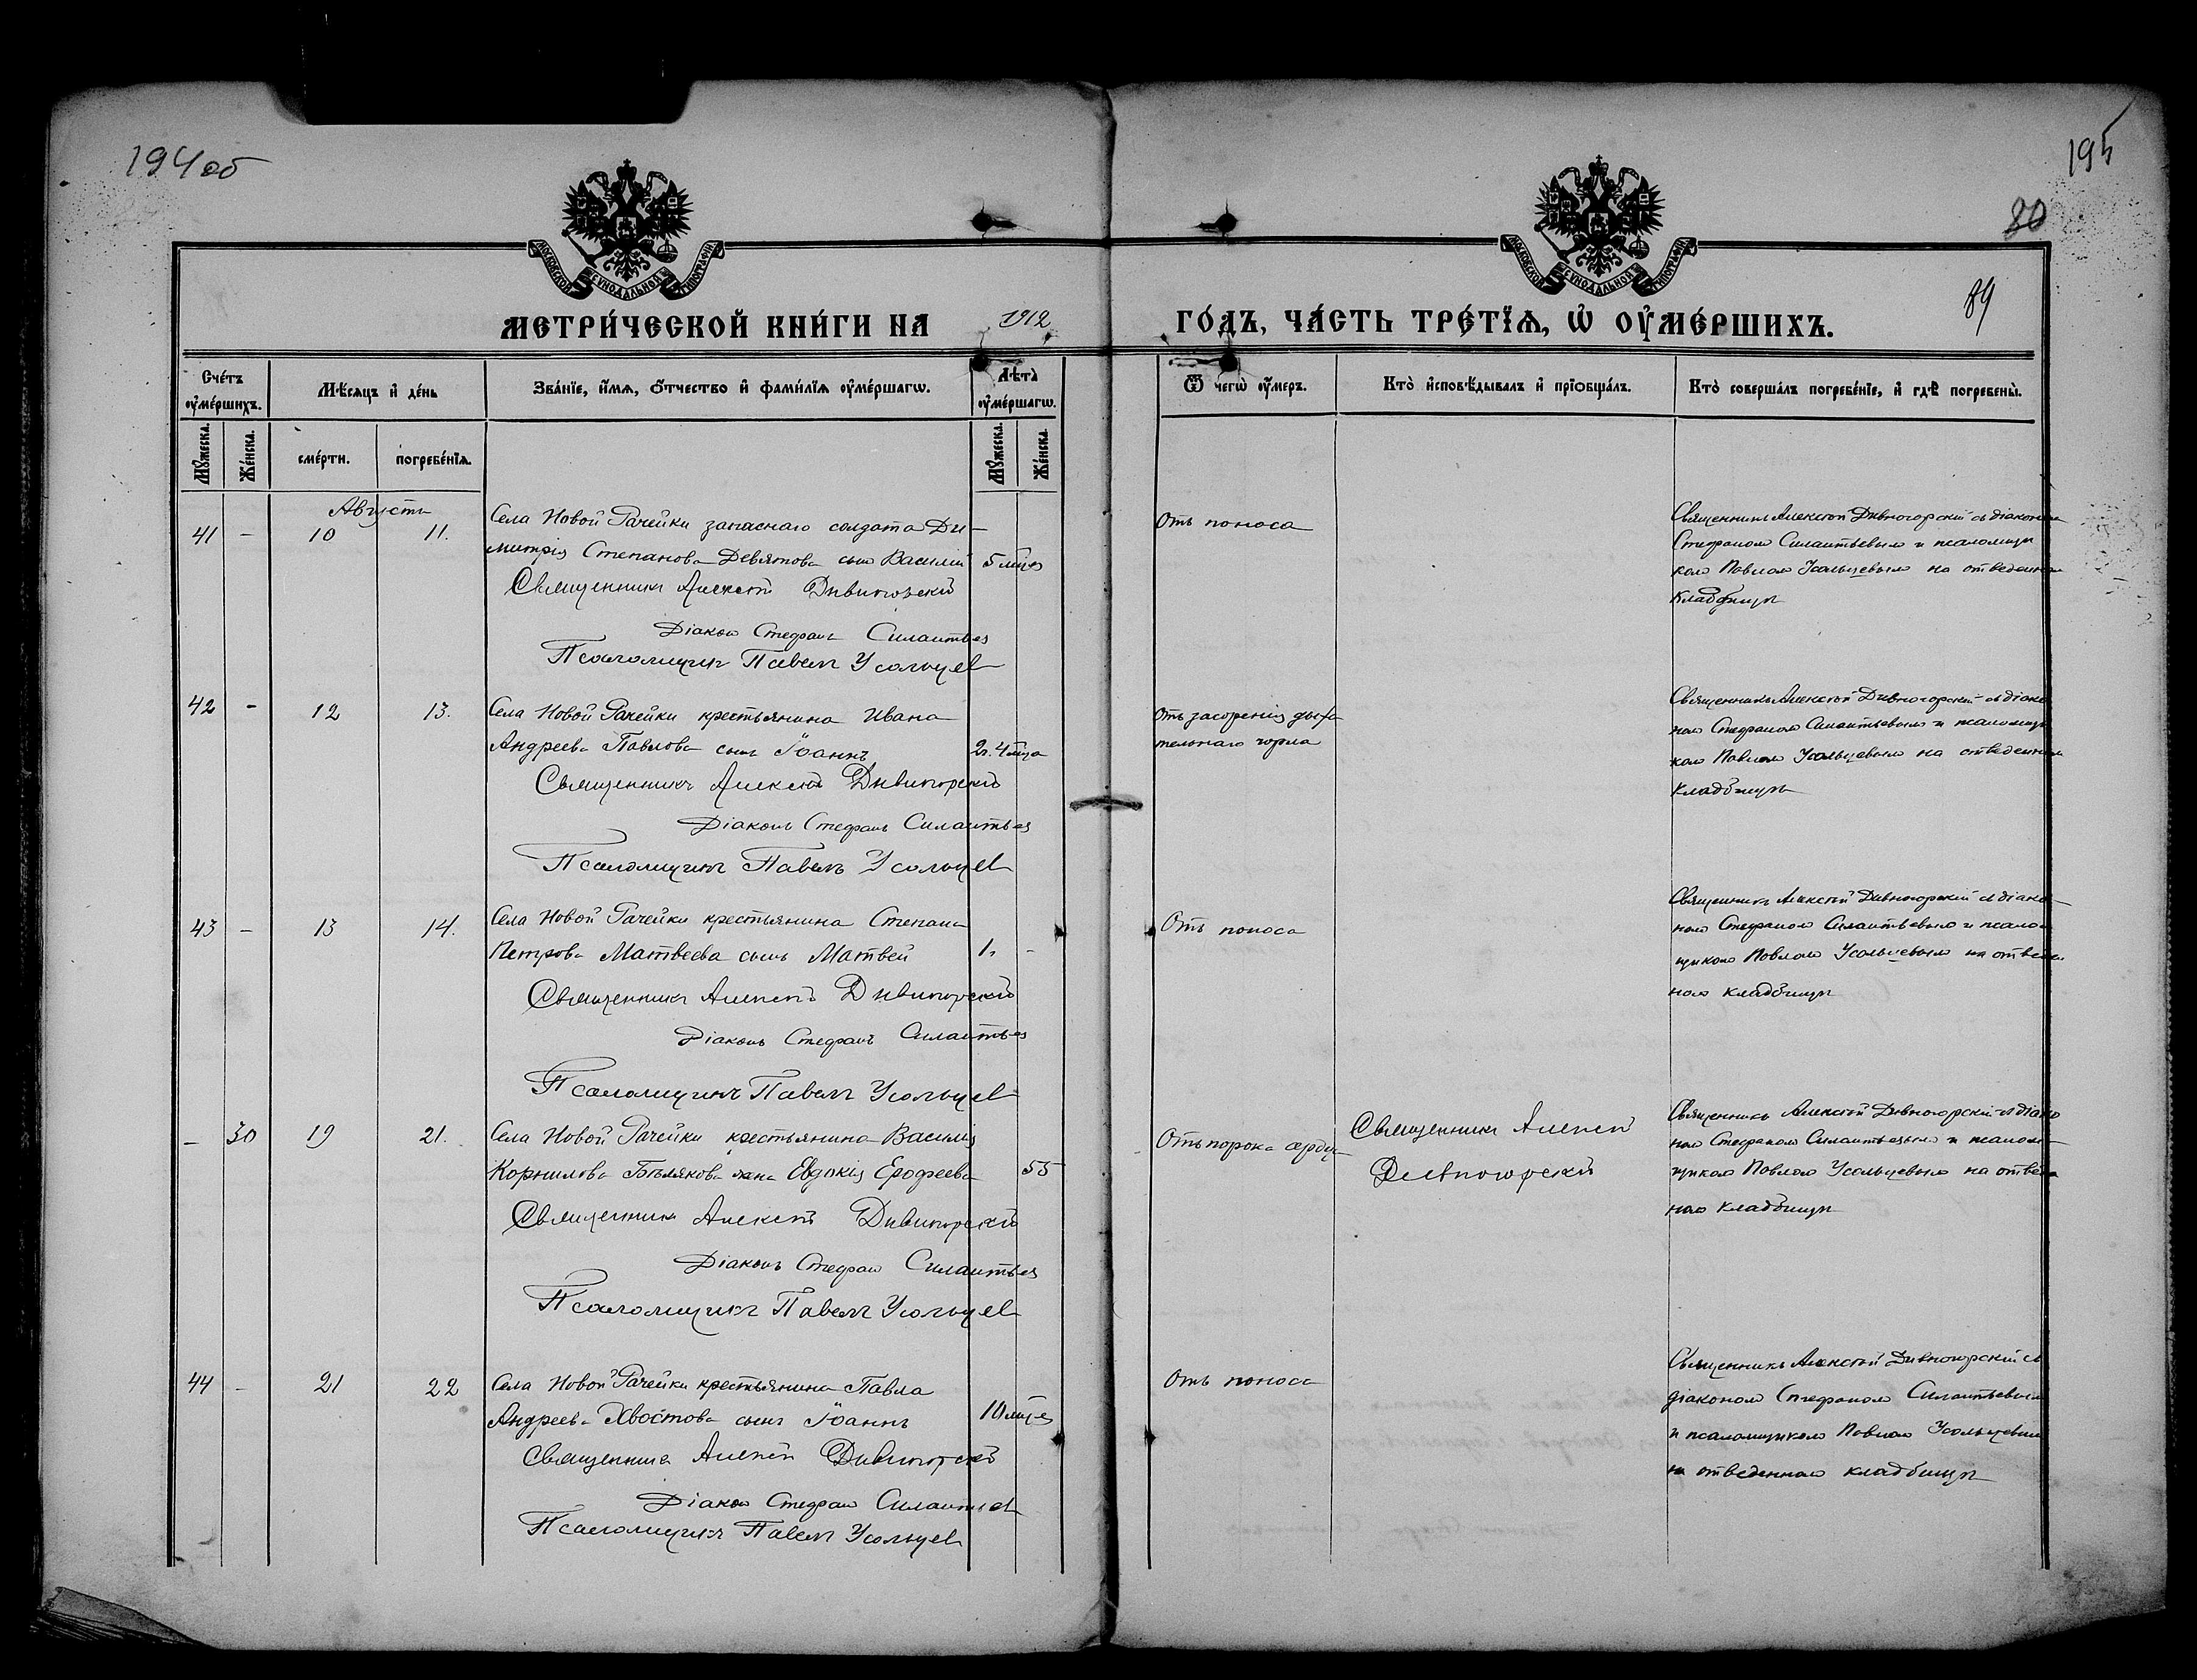 194 об
195
80
89
МОСКОВСКОЙ СѴНОДАЛЬНОЙ ТИПОГРАФІИ
МОСКОВСКОЙ СѴНОДАЛЬНОЙ ТИПОГРАФІИ
МЕТРИ́ЧЕСКОЙ КНИ́ГИ НА 1912 ГО́ДЪ, ЧА́СТЬ ТРЕ́ТЇѦ, Ѡ҆ ОУ҆МЕ́РШИХЪ.
Сче́тъ оу҆ме́ршихъ.
Мѣ́сяцъ и҆ де́нь
Зва́нїе, и҆́мя, ѻ҆́тчество и҆ фами́лїя оу҆ме́ршагѡ.
Лѣ́та оу҆ме́ршагѡ.
Ѿ чегѡ̀ оу҆́меръ.
Кто̀ и҆сповѣ́дывалъ и҆ прїѡбща́лъ.
Кто̀ соверша́лъ погребе́нїе, и҆ гдѣ̀ погребены̀.
Мꙋ́жеска.
Же́нска.
сме́рти.
погребе́нїѧ.
Мꙋ́жеска.
Же́нска.
Августъ
41 - 10 11.
Села Новой Рачейки запаснаго солдата Ди-
митрія Степанова Девятова сынъ Василій 5 мѣс.
Священникъ Алексѣй Дивногорскій
Діаконъ Стефанъ Силантьев
Псаломщикъ Павелъ Усольцев
Отъ поноса
Священникъ Алексѣй Дивногорскій съ діакономъ
Стефаномъ Силантьевымъ и псаломщи
комъ Павломъ Усольцевымъ на отведенномъ
кладбищѣ
42 - 12 13.
Села Новой Рачейки крестьянина Ивана
Андреева Павлова сынъ Іоаннъ 2г. 4 мѣца
Священникъ Алексѣй Дивногорскій
Діаконъ Стефанъ Силантьев
Псаломщикъ Павелъ Усольцев
Отъ засоренія дыха
тельнаго горла
Священникъ Алексѣй Дивногорскій съ діако
номъ Стефаномъ Силантьевымъ и псаломщи
комъ Павломъ Усольцевымъ на отведенномъ
кладбищѣ
43 - 13 14.
Села Новой Рачейки крестьянина Степана
Петрова Матвеева сынъ Матвей 1г -
Священникъ Алексѣй Дивногорскій
Діаконъ Стефанъ Силантьев
Псаломщикъ Павелъ Усольцев
Отъ поноса
Священникъ Алексѣй Дивногорскій съ діако-
номъ Стефаномъ Силантьевымъ и псалом
щикомъ Павломъ Усольцевымъ на отведен
номъ кладбищѣ
- 30 19 21.
Села Новой Рачейки крестьянина Василія
Корнилова Бѣлякова жена Евдокія Ерофеева 55
Священникъ Алексѣй Дивногорскій
Діаконъ Стефанъ Силантьев
Псаломщикъ Павелъ Усольцев
Отъ порока сердца
Священникъ Алексѣй
Дивногорскій
Священникъ Алексѣй Дивногорскій съ діако
номъ Стефаномъ Силантьевымъ и псалом-
щикомъ Павломъ Усольцевымъ на отведен
номъ кладбищѣ
44 - 21 22
Села Новой Рачейки крестьянина Павла
Андреева Хвостова сынъ Іоаннъ 10 мѣс.
Священникъ Алексѣй Дивногорскій
Діаконъ Стефанъ Силантьев
Псаломщикъ Павелъ Усольцев
Отъ поноса
Священникъ Алексѣй Дивногорскій съ
діакономъ Стефаномъ Силантьевымъ
и псаломщикомъ Павломъ Усольцевымъ
на отведенномъ кладбищѣ